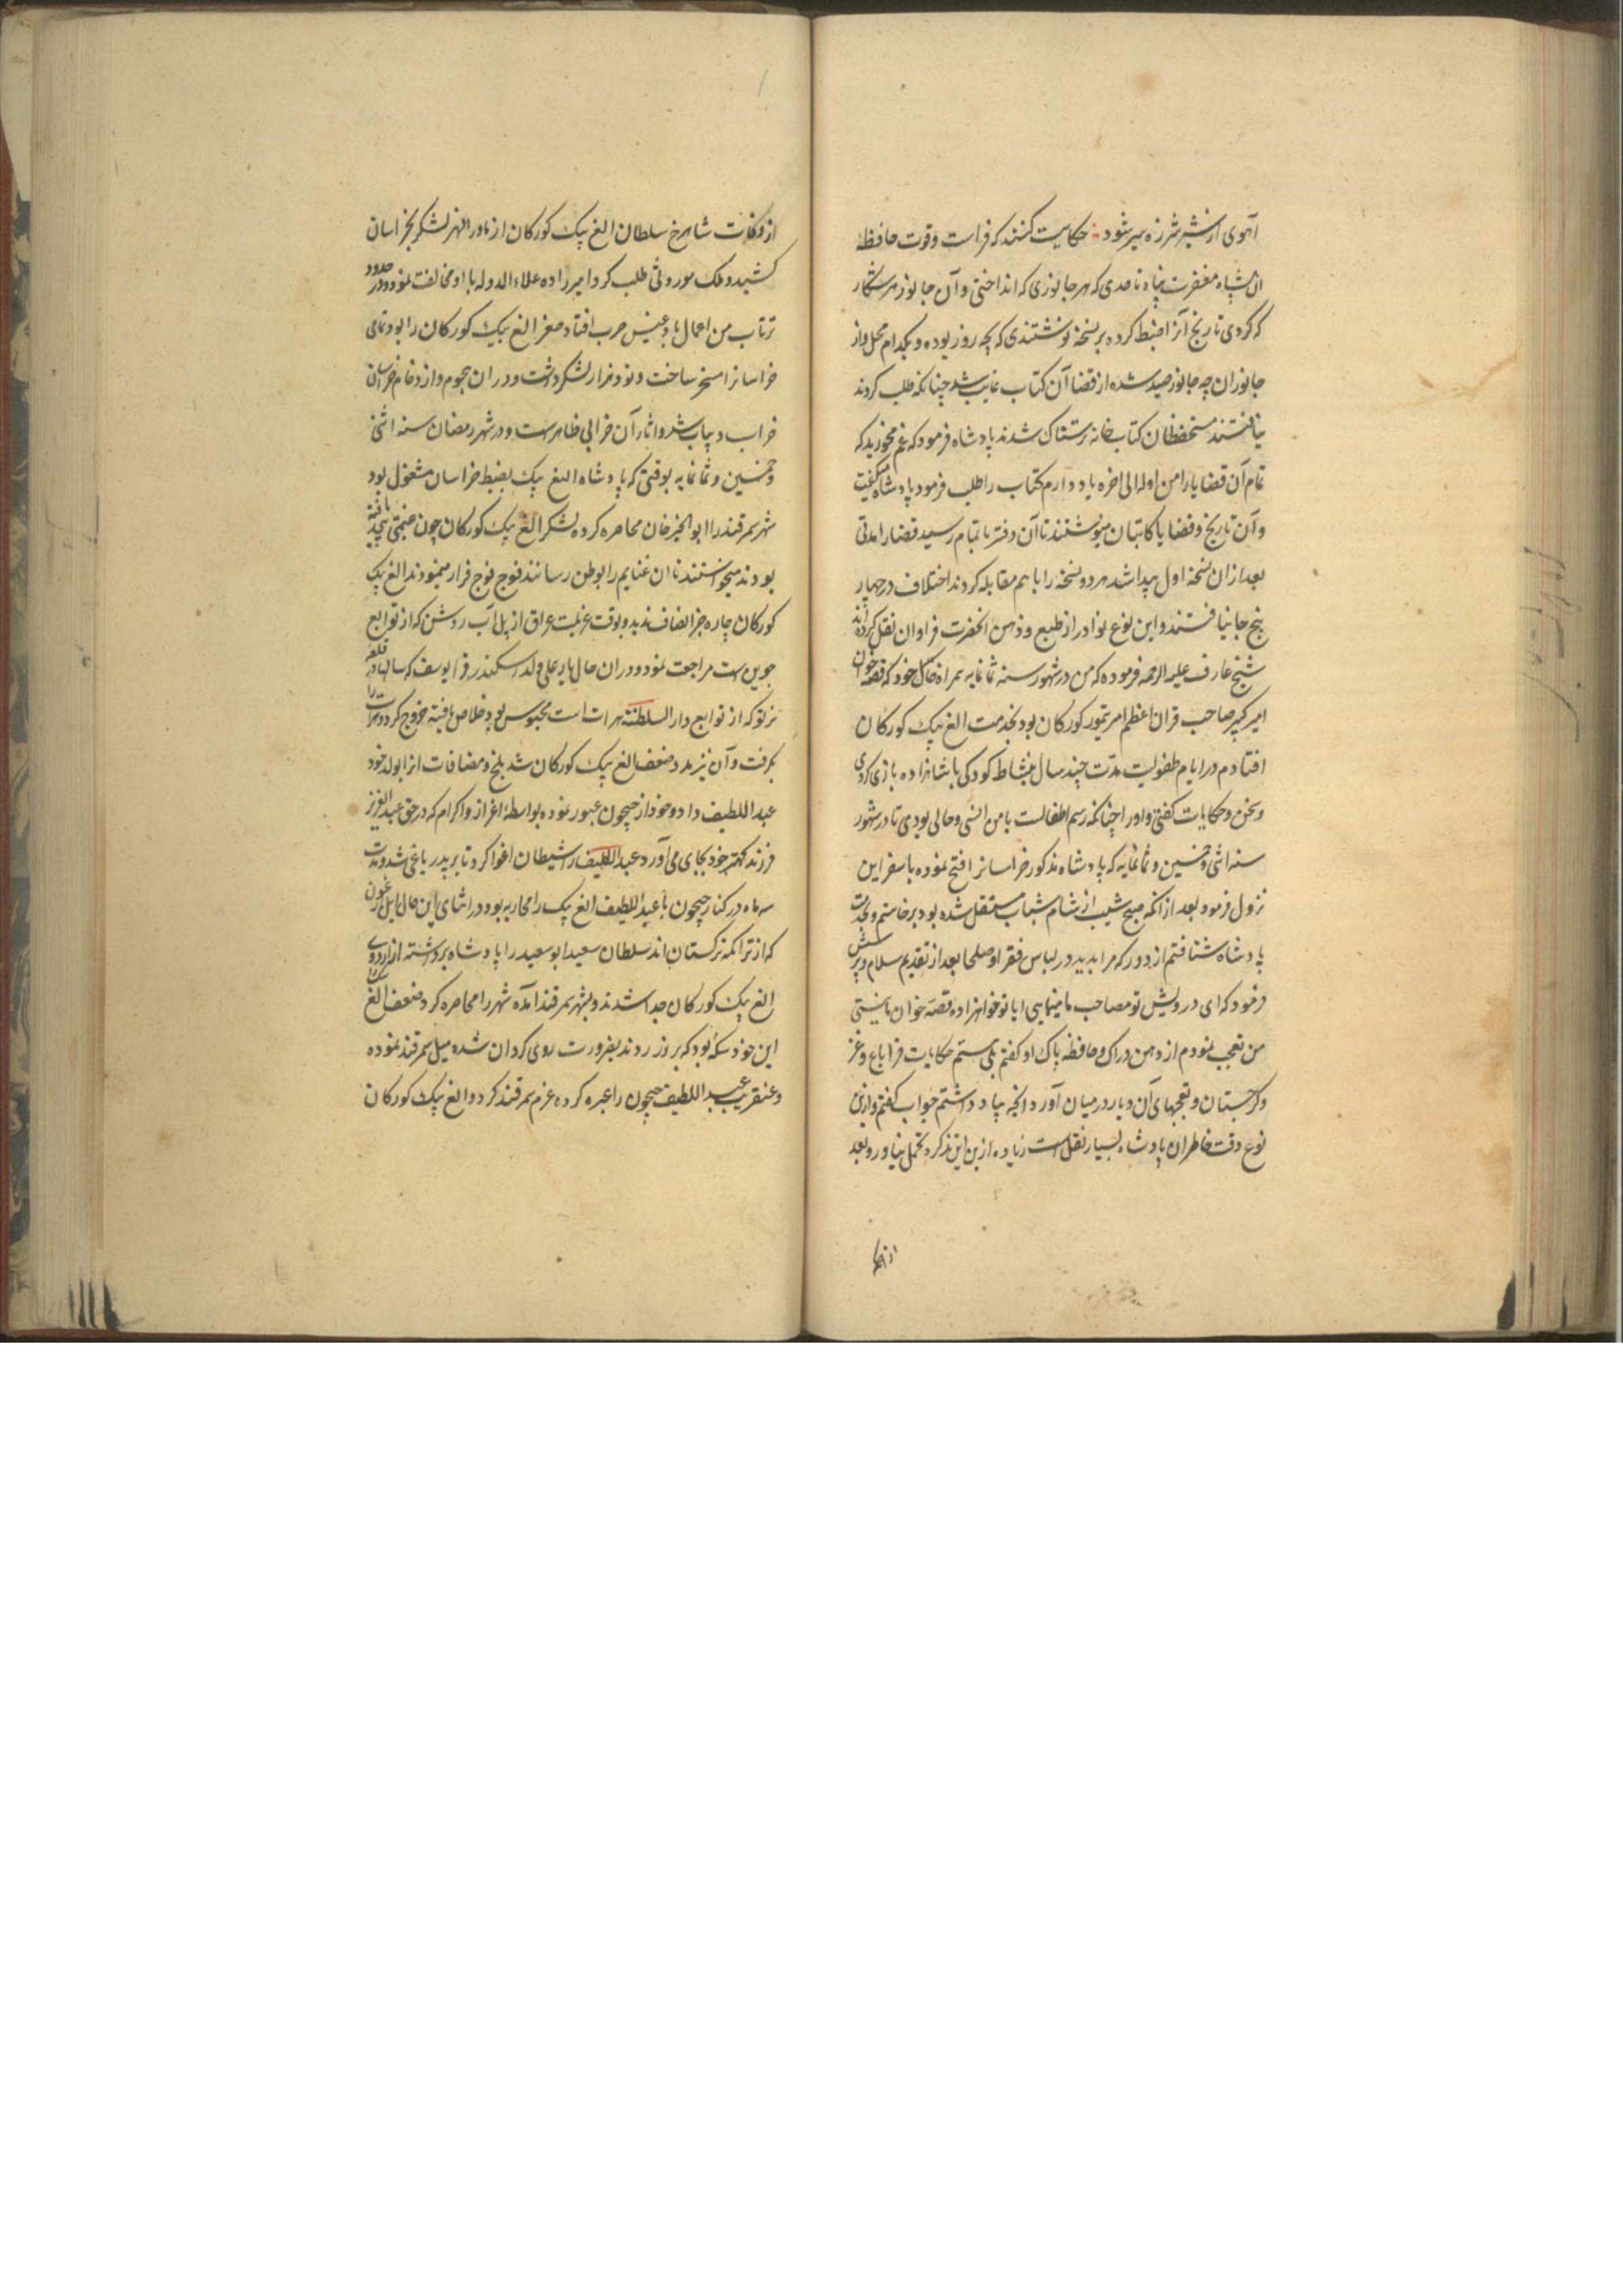 آهوی از شیر شرزه سیر شود حکایت کنند که فراست وقوت حافظهٔ
ان شاه مغفرت پناه تا حدی که هر جانوری که انداختی و آن جانور هر شکار
که کردی تاریخ آنرا ضبط کرده بر نسخه نوشتندی که بچه روز بوده و بکدام محل واز
جانوران چه جانور صید شده از قضا آن کتاب غایب شد چنانکه طلب کردند
نیافتند مستحفظان کتاب خانه ترسناک شدند پادشاه فرمود که غم مخورید که
تمام آن قضایا را من اوله الی اخره یاد دارم کتاب را طلب فرمود پادشاه میکفت
و آن تاریخ و قضایا کاتبان مینوشتند تا آن دفتر باتمام رسید قضا را مدتی
بعد از ان نسخهٔ اول پیدا شد هر دو نسخه را با هم مقابله کردند اختلاف در چهار
پنج جا نیافتند و این نوع نوادر از طبع و ذهن انحضرت فراوان نقل کرده اند
شیخ عارف علیه الرحمه فرموده که من در شهور سنه ثمانمایه همراه خال خود که قصه خوان
امیر کبیر صاحب قران اعظم امیر تیمور کورکان بود بخدمت الغ بیک کورکان
افتادم در ایام طفولیت مدت چند سال بنشاط کودکی با شاهزاده بازی کردی
و سخن و حکایات کفتی و اورا چنانکه رسم اطفالست با من انسی و حالی بودی تا در شهور
سنه اثنی و خمسین و ثمانمایه که پادشاه مذکور خراسانرا فتح نموده باسفراین
نزول فرمود بعد از انکه صبح شیب از شام شباب مستقل شده بود برخاستم و بخدمت
پادشاه شتافتم از دور که مرا بدید در لباس فقرا و صلحا بعد از تقدیم سلام و پرسش
فرمود که ای درویش تو مصاحب ما مینمایی ایا تو خواهرزاده قصه خوان ما نیستی
من تعجب نمودم از ذهن دراک و حافظه پاک او کفتم بلی هستم حکایت قراباغ و غز
و کرجستان و تعجبهای آن دیار در میان آورد انچه بیاد داشتم جواب کفتم و ازین
نوع دقت خاطر ان پادشاه بسیار نقل است زیاده ازین این تذکره تحمل نیاورد و بعد
از وفات شاهرخ سلطان الغ بیک کورکان از ماورا النهر لشکر بخراسان
کشید و ملک موروثی طلب کرد امیرزاده علاء الدوله با او مخالفت نمود و در حدود
ترناب من اعمال بادغیس حرب افتاد ظفر الغ بیک کورکان را بود و تمامی
خراسانرا مسخر ساخت و نود هزار لشکر داشت و در ان هجوم و ازدحام خراسان
خراب و یباب شد و اثار آن خرابی ظاهر است و در شهر رمضان سنه اثنی
و خمسین و ثمانمایه بوقتی که پادشاه الغ بیک بضبط خراسان مشغول بود
شهر سمرقند را ابو الخیر خان محاصره کرده لشکر الغ بیک کورکان چون غنیمتی بیحد یافته
بودند میخواستند تا ان غنایم را بوطن رسانند فوج فوج فرار مینمودند الغ بیک
کورکان چاره جز انصاف ندید و بوقت عزیمت عراق از پل آب روشن که از توابع
جوین ست مراجعت نمود و در ان حال یارعلی ولد اسکندر قرا یوسف که سالها در قلعه
نرتو که از توابع دار السلطنته هرات است محبوس بود خلاص یافته خروج کرد و هرات را
بکرفت و آن نیز مدد ضعف الغ بیک کورکان شد بلخ و مضافات انرا بولد خود
عبد اللطیف داد و خود از جیحون عبور نموده بواسطهٔ اعزاز و اکرام که در حق عبد العزیز
فرزند کهتر خود بجای می آورد عبد اللطیف را شیطان اغوا کرد تا بر پدر یاغی شد و مدت
سه ماه در کنار جیحون با عبد اللطیف الغ بیک را محاربه بود در اثنای این حال ایل ارغون
که از تراکمه ترکستان اند سلطان سعید ابو سعید را پادشاه برداشته از اردوی
الغ بیک کورکان جدا شدند و بشهر سمرقند آمده شهر را محاصره کرد ضعف الغ بیک
این خود سکه بود که بر وز روند بضرورت روی کردان شده میل سمرقند نموده
و عنقریب عبد اللطیف جیحون را عبره کرده عزم سمرقند کرد و الغ بیک کورکان